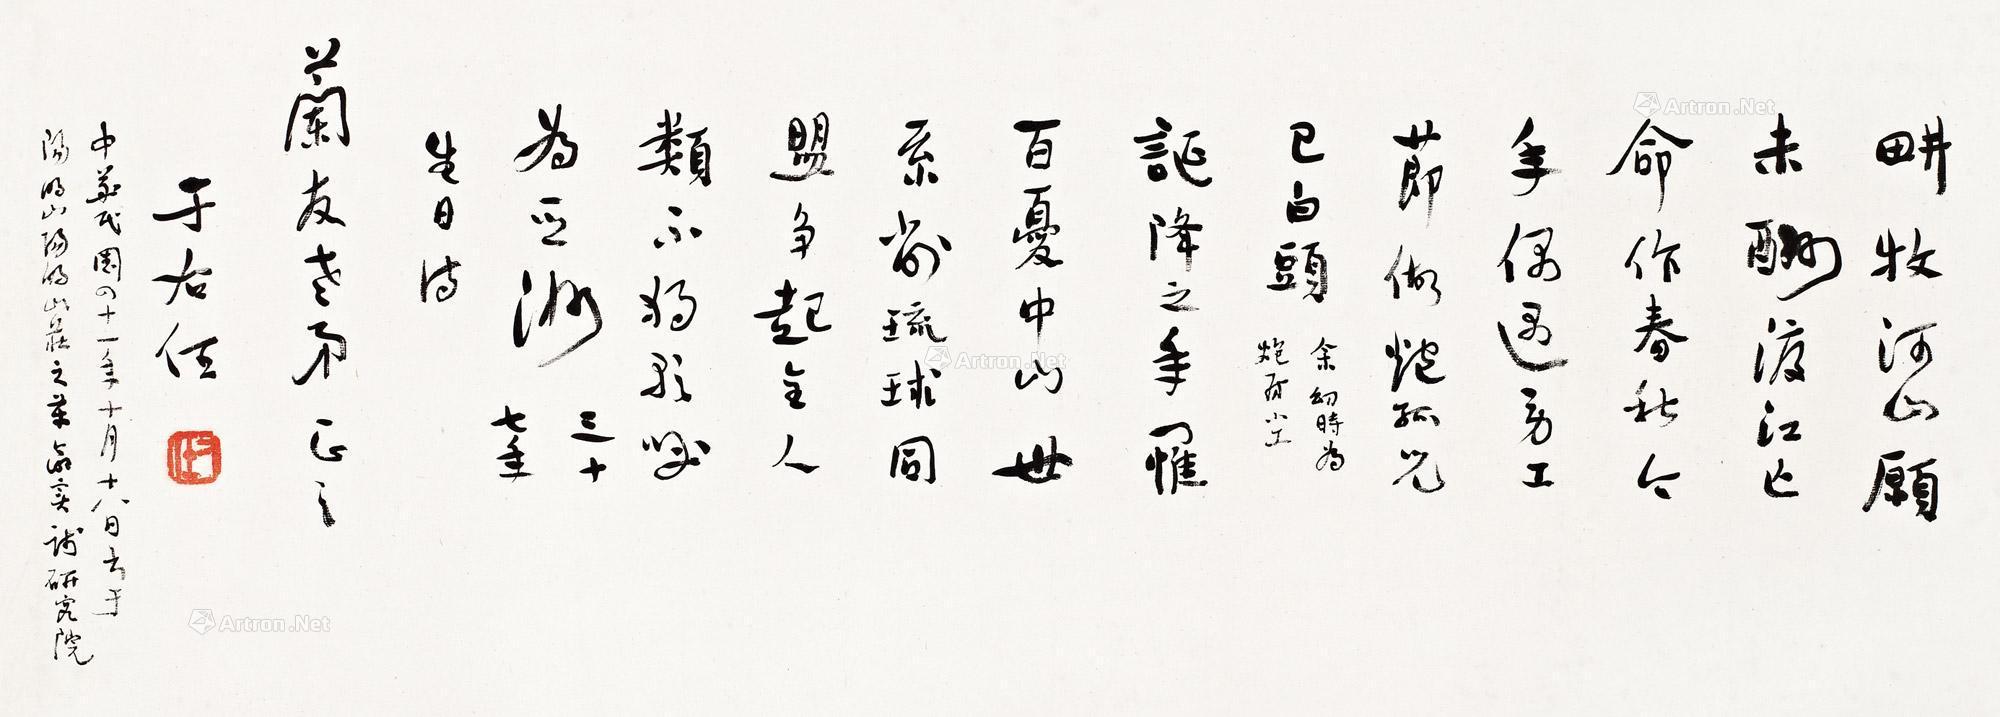 畊牧河山願
未酬渡江亡
命作春秋今
年偶遇勞工
節做炮孤兒
已白頭
余幼時為
炮房小工
誕降之年罹
百憂中山世
系削琉球同
盟爭起全人
類不獨
為亞洲
三十
七年
生日詩
蘭友老弟正之
于右任
中華民國四十一年十月十八日書于
陽明山陽明山莊之革命實踐研究院
Artron.Net
Artron.Net
Artron.Net